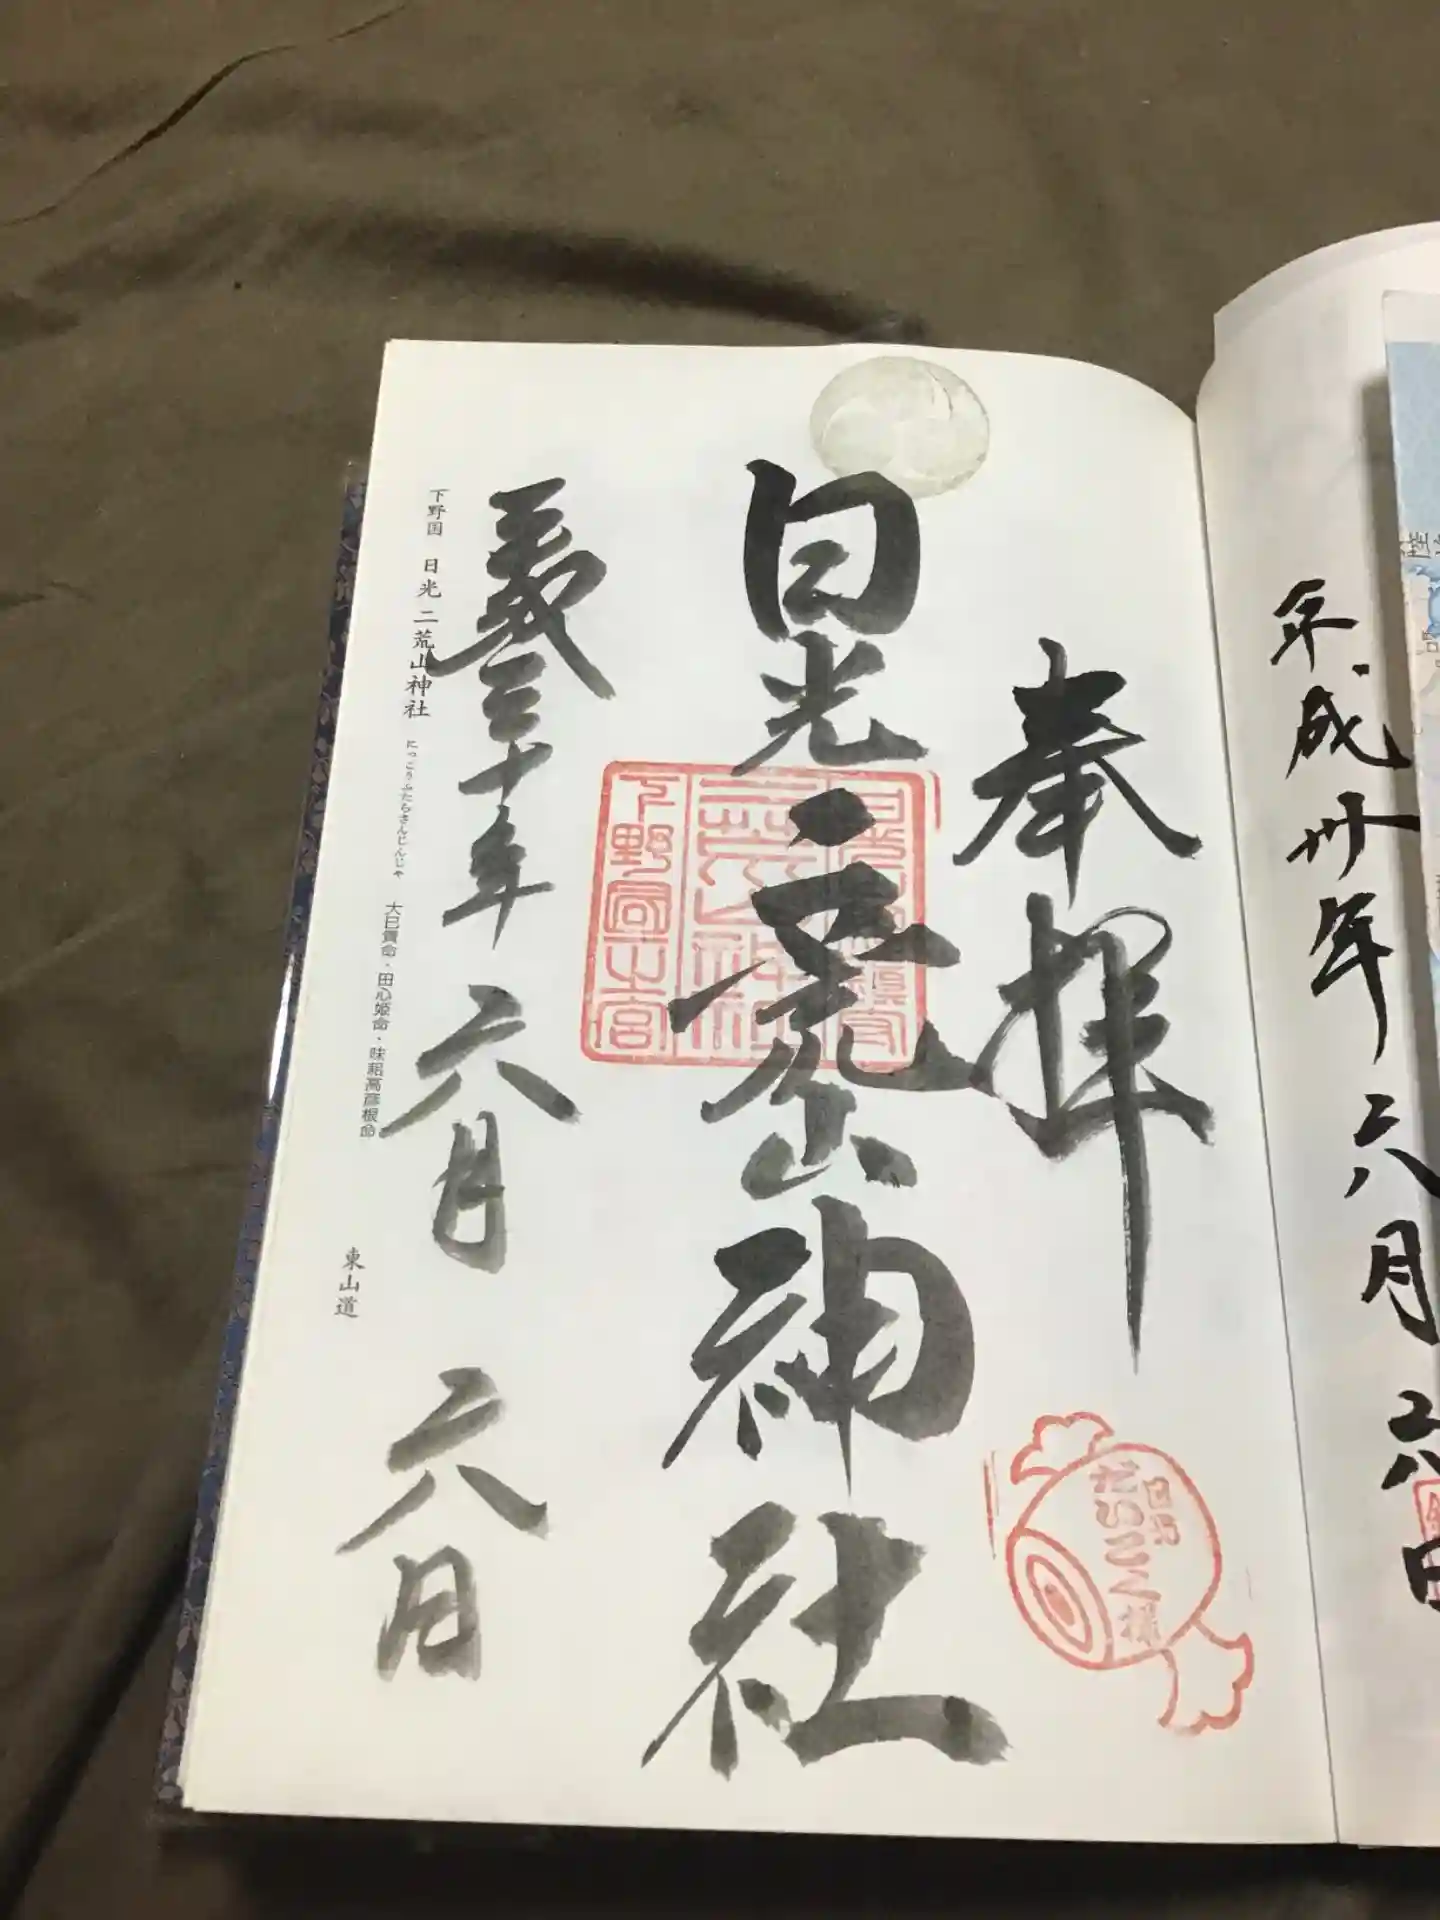 平成卅年六月六日
奉拝
日光二荒山神社
平成三十年六月六日
下野国 日光二荒山神社 にっこうふたらさんじんじゃ 大己貴命・田心姫命・味耜高彦根命 東山道
二荒山神社
下野國一之宮
日光
だいこく様